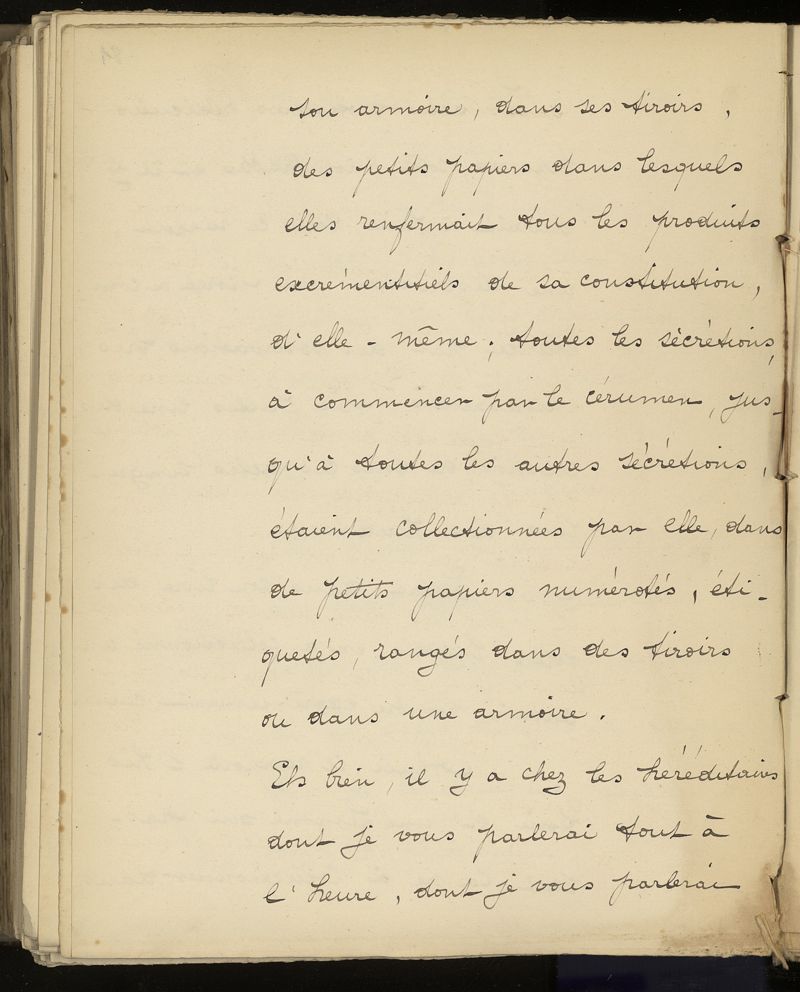 son armoire, dans ses tiroirs,
des petits papiers dans lesquels
elles renfermait tous les produits
excrémentitiels de sa constitution,
d'elle-même ; toutes les sécrétions,
à commencer par le cérumen, jus-
qu'à toutes les autres sécrétions,
étaient collectionnées par elle, dans
de petits papiers numérotés, éti-
quetés, rangés dans des tiroirs
ou dans une armoire.
Eh bien, il y a chez les héréditaires
dont je vous parlerai tout à
l'heure, dont je vous parlerai